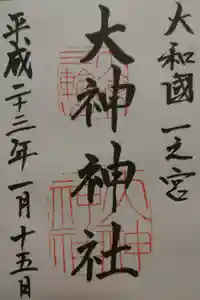 大和國一之宮
大神神社
平成二十三年一月十五日